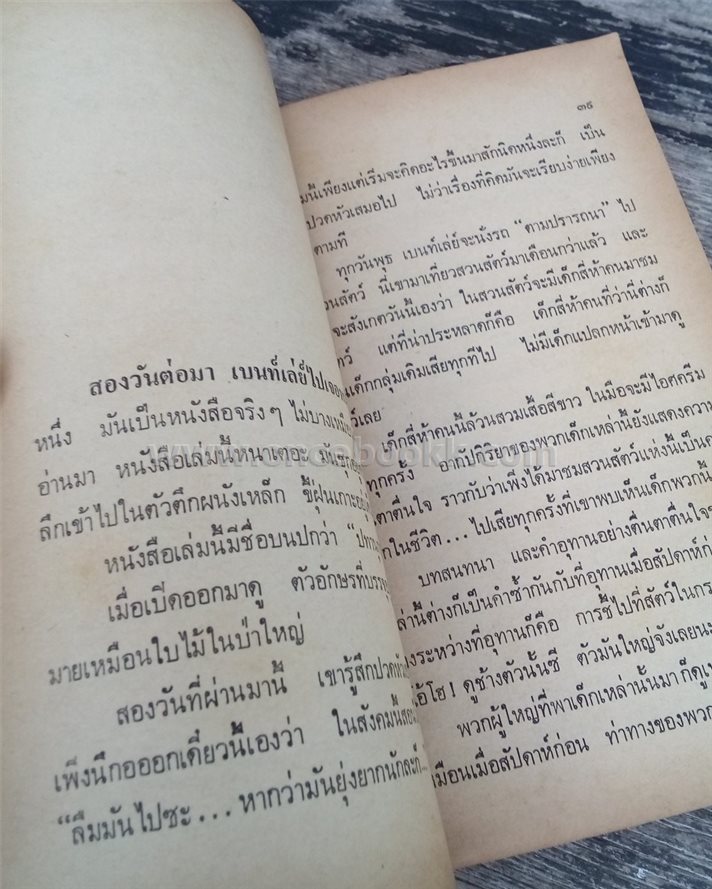 สองวันต่อมา เบนท์เล่ย์ไปเจอ
หนึ่ง มันเป็นหนังสือจริงๆ ไม่บางเหมือน
อ่านมา หนังสือเล่มนี้หนาเตอะ
ลึกเข้าไปในตัวตึกผนังเหล็ก ขี้ฝุ่นเกาะ
หนังสือเล่มนี้มีชื่อบนปกว่า
เมื่อเปิดออกมาดู ตัวอักษรที่บรรจุ
มายเหมือนใบไม้ในป่าใหญ่
สองวันที่ผ่านมานี้ เขารู้สึกปวดหัว
เพิ่งนึกอออกเดี๋ยวนี้เองว่า ในสังคมนี้สอน
“ลืมมันไปซะ... หากว่ามันยุ่งยากนักละก็...
๓๙
มนี้เพียงแต่เริ่มจะคิดอะไรขึ้นมาสักนิดหนึ่งละก็ เป็น
ปวดหัวเสมอไป ไม่ว่าเรื่องที่คิดมันจะเรียบง่ายเพียง
ตามที
ทุกวันพุธ เบนท์เล่ย์จะนั่งรถ “ตามปรารถนา” ไป
วนสัตว์ นี่เขามาเที่ยวสวนสัตว์มาเดือนกว่าแล้ว และ
จะสังเกตวันนี้เองว่า ในสวนสัตว์จะมีเด็กสี่ห้าคนมาชม
ว์ แต่ที่น่าประหลาดก็คือ เด็กสี่ห้าคนที่ว่านี่ต่างก็
นเด็กกลุ่มเดิมเสียทุกทีไป ไม่มีเด็กแปลกหน้าเข้ามาดู
ว์เลย
เด็กสี่ห้าคนนี้ล้วนสวมเสื้อสีขาว ในมือจะมีไอศครีม
ทุกครั้ง อากัปกิริยาของพวกเด็กเหล่านี้ยังแสดงความ
ตาตื่นใจ ราวกับว่าเพิ่งได้มาชมสวนสัตว์แห่งนี้เป็นค
กในชีวิต... ไปเสียทุกครั้งที่เขาพบเห็นเด็กพวกนี้
บทสนทนา และคำอุทานอย่างตื่นตาตื่นใจข
ล่านี้ต่างก็เป็นคำซ้ำกันกับที่อุทานเมื่อสัปดาห์ก่
างระหว่างที่อุทานก็คือ การชี้ไปที่สัตว์ในกร
โอ้โฮ! ดูช้างตัวนั้นซี ตัวมันใหญ่จังเลยนะ
พวกผู้ใหญ่ที่พาเด็กเหล่านั้นมา ก็ดูเห
มือนเมื่อสัปดาห์ก่อน ท่าทางของพวก